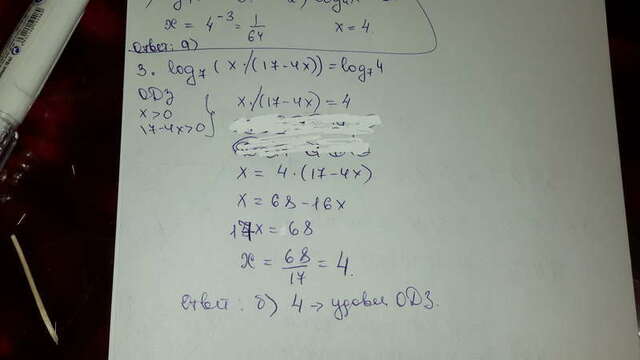 x = 4⁻³ = 1/64 x = 4.
Ответ: а)
3. log₇ (x/(17-4x)) = log₇4
ОДЗ
x>0
17-4x>0
x/(17-4x) = 4
x = 4·(17-4x)
x = 68-16x
17x = 68
x = 68/17 = 4.
Ответ: б) 4 → удовл ОДЗ.